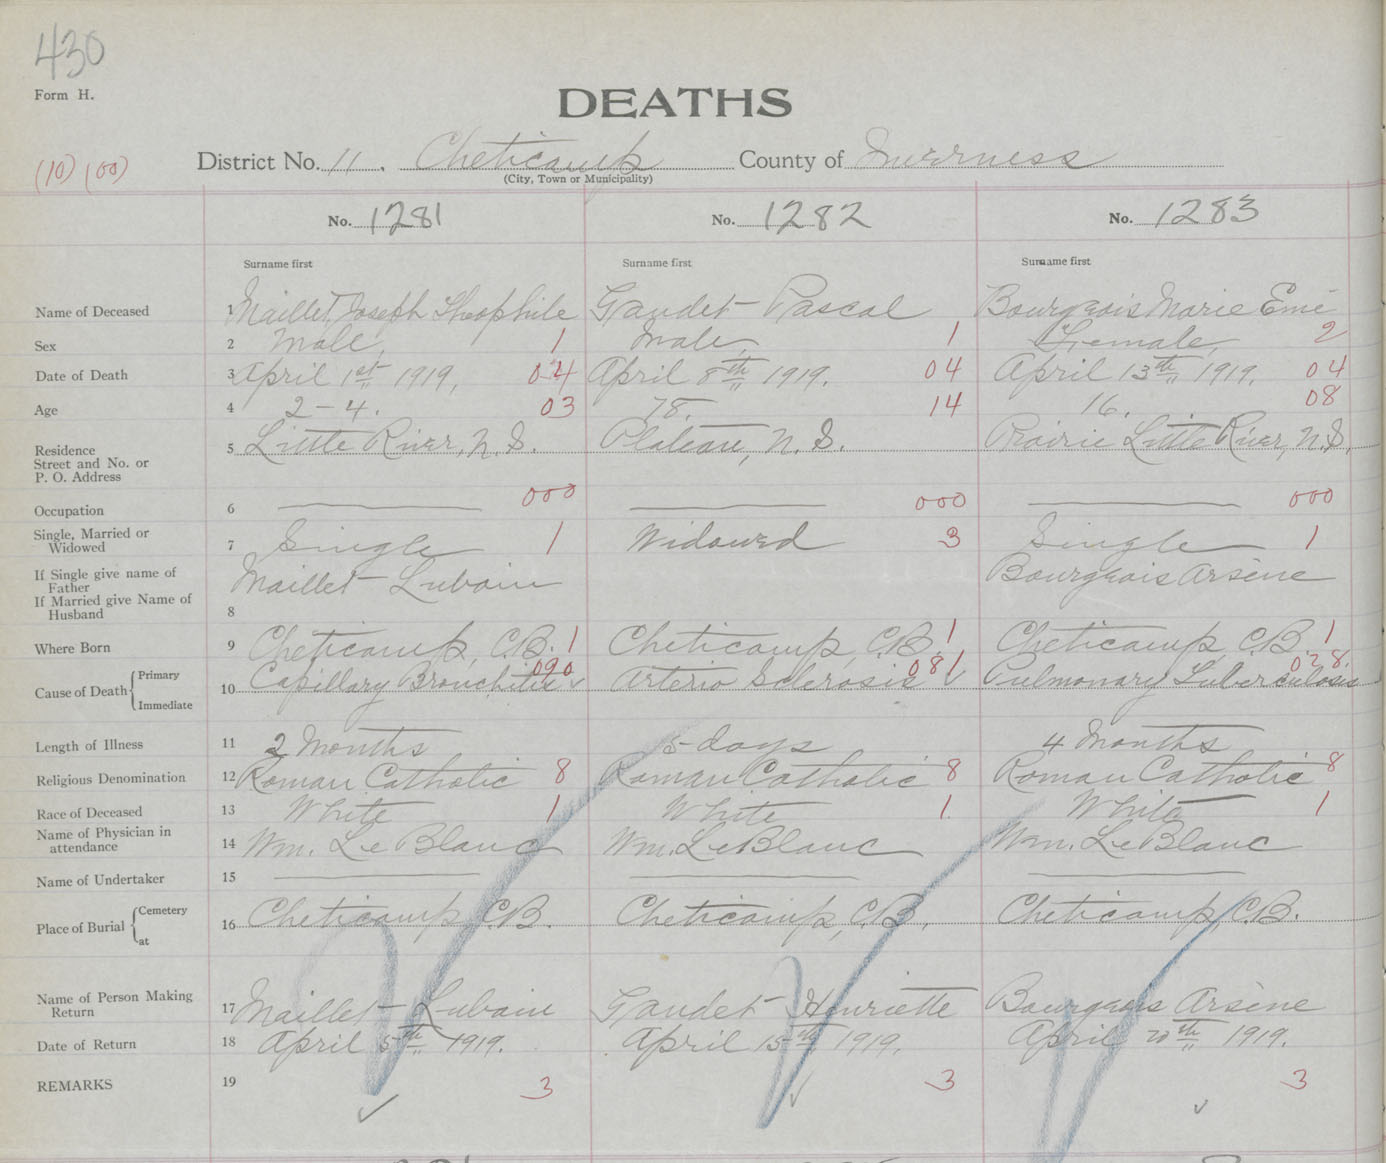 430
Form H.
DEATHS
(10) (00)
District No. 11. Cheticamp County of Inverness
(City, Town or Municipality)
No. 1281 No. 1282 No. 1283
Surname first Surname first Surname first
Name of Deceased 1 Maillet, Joseph Theophile Gaudet Pascal Bourgeois Marie Emé
Sex 2 Male, 1 Male, 1 Female, 2
Date of Death 3 April 1st 1919. 04 April 8th 1919. 04 April 13th 1919. 04
Age 4 2-4. 03 78. 14 16. 08
Residence
Street and No. or
P. O. Address 5 Little River, N.S. Plateau, N.S. Prairie Little River, N.S.
Occupation 6 000 000 000
Single, Married or
Widowed 7 Single 1 Widowed 3 Single 1
If Single give name of
Father
If Married give Name of
Husband 8 Maillet Lubain Bourgeois Arsène
Where Born 9 Cheticamp, C.B. 1 Cheticamp, C.B. 1 Cheticamp, C.B. 1
Cause of Death { Primary
Immediate 10 Capillary Bronchitis 090 Arterio Sclerosis 081 Pulmonary Tuberculosis 028.
Length of Illness 11 2 Months 5 days 4 Months
Religious Denomination 12 Roman Catholic 8 Roman Catholic 8 Roman Catholic 8
Race of Deceased 13 White 1 White 1. White 1
Name of Physician in
attendance 14 Wm. LeBlanc Wm. LeBlanc Wm. LeBlanc
Name of Undertaker 15
Place of Burial { Cemetery
at 16 Cheticamp, C.B. Cheticamp, C.B. Cheticamp, C.B.
Name of Person Making
Return 17 Maillet Lubain Gaudet Henriette Bourgeois Arsène
Date of Return 18 April 5th 1919. April 15th 1919. April 20th 1919.
REMARKS 19 3 3 3